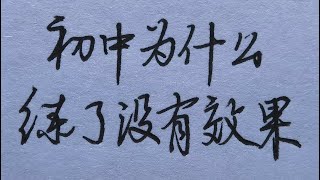 初中为什么
练了没有效果